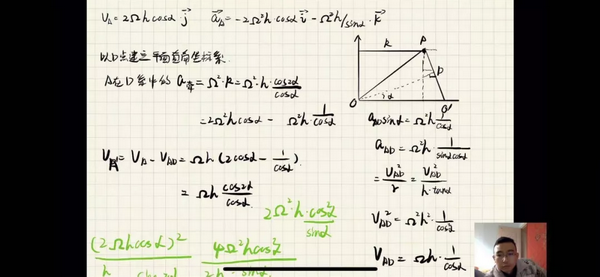 V_A = 2Ωh cosα j⃗   a⃗_A = -2Ω²h cosα i⃗ - Ω²h/sinα · k⃗
以D点建立平面直角坐标系
A在D系中的 a_牵 = Ω²·R = Ω²·h·cos2α/cosα
= 2Ω²h cosα - Ω²h·1/cosα
= V_A - V_AD = Ωh(2cosα - 1/cosα)
= Ωh cos2α/cosα
2Ω²·h·cos²α/sinα
(2Ωh cosα)²/h
4Ω²h cos²α
R
A
D
O
α
O'
a_AD sinα = Ω²h 1/cosα
a_AD = Ω²h · 1/sinα cosα
= V_AD²/r = V_AD²/h·tanα
V_AD² = Ω²h²·1/cos²α
V_AD = Ωh·1/cosα